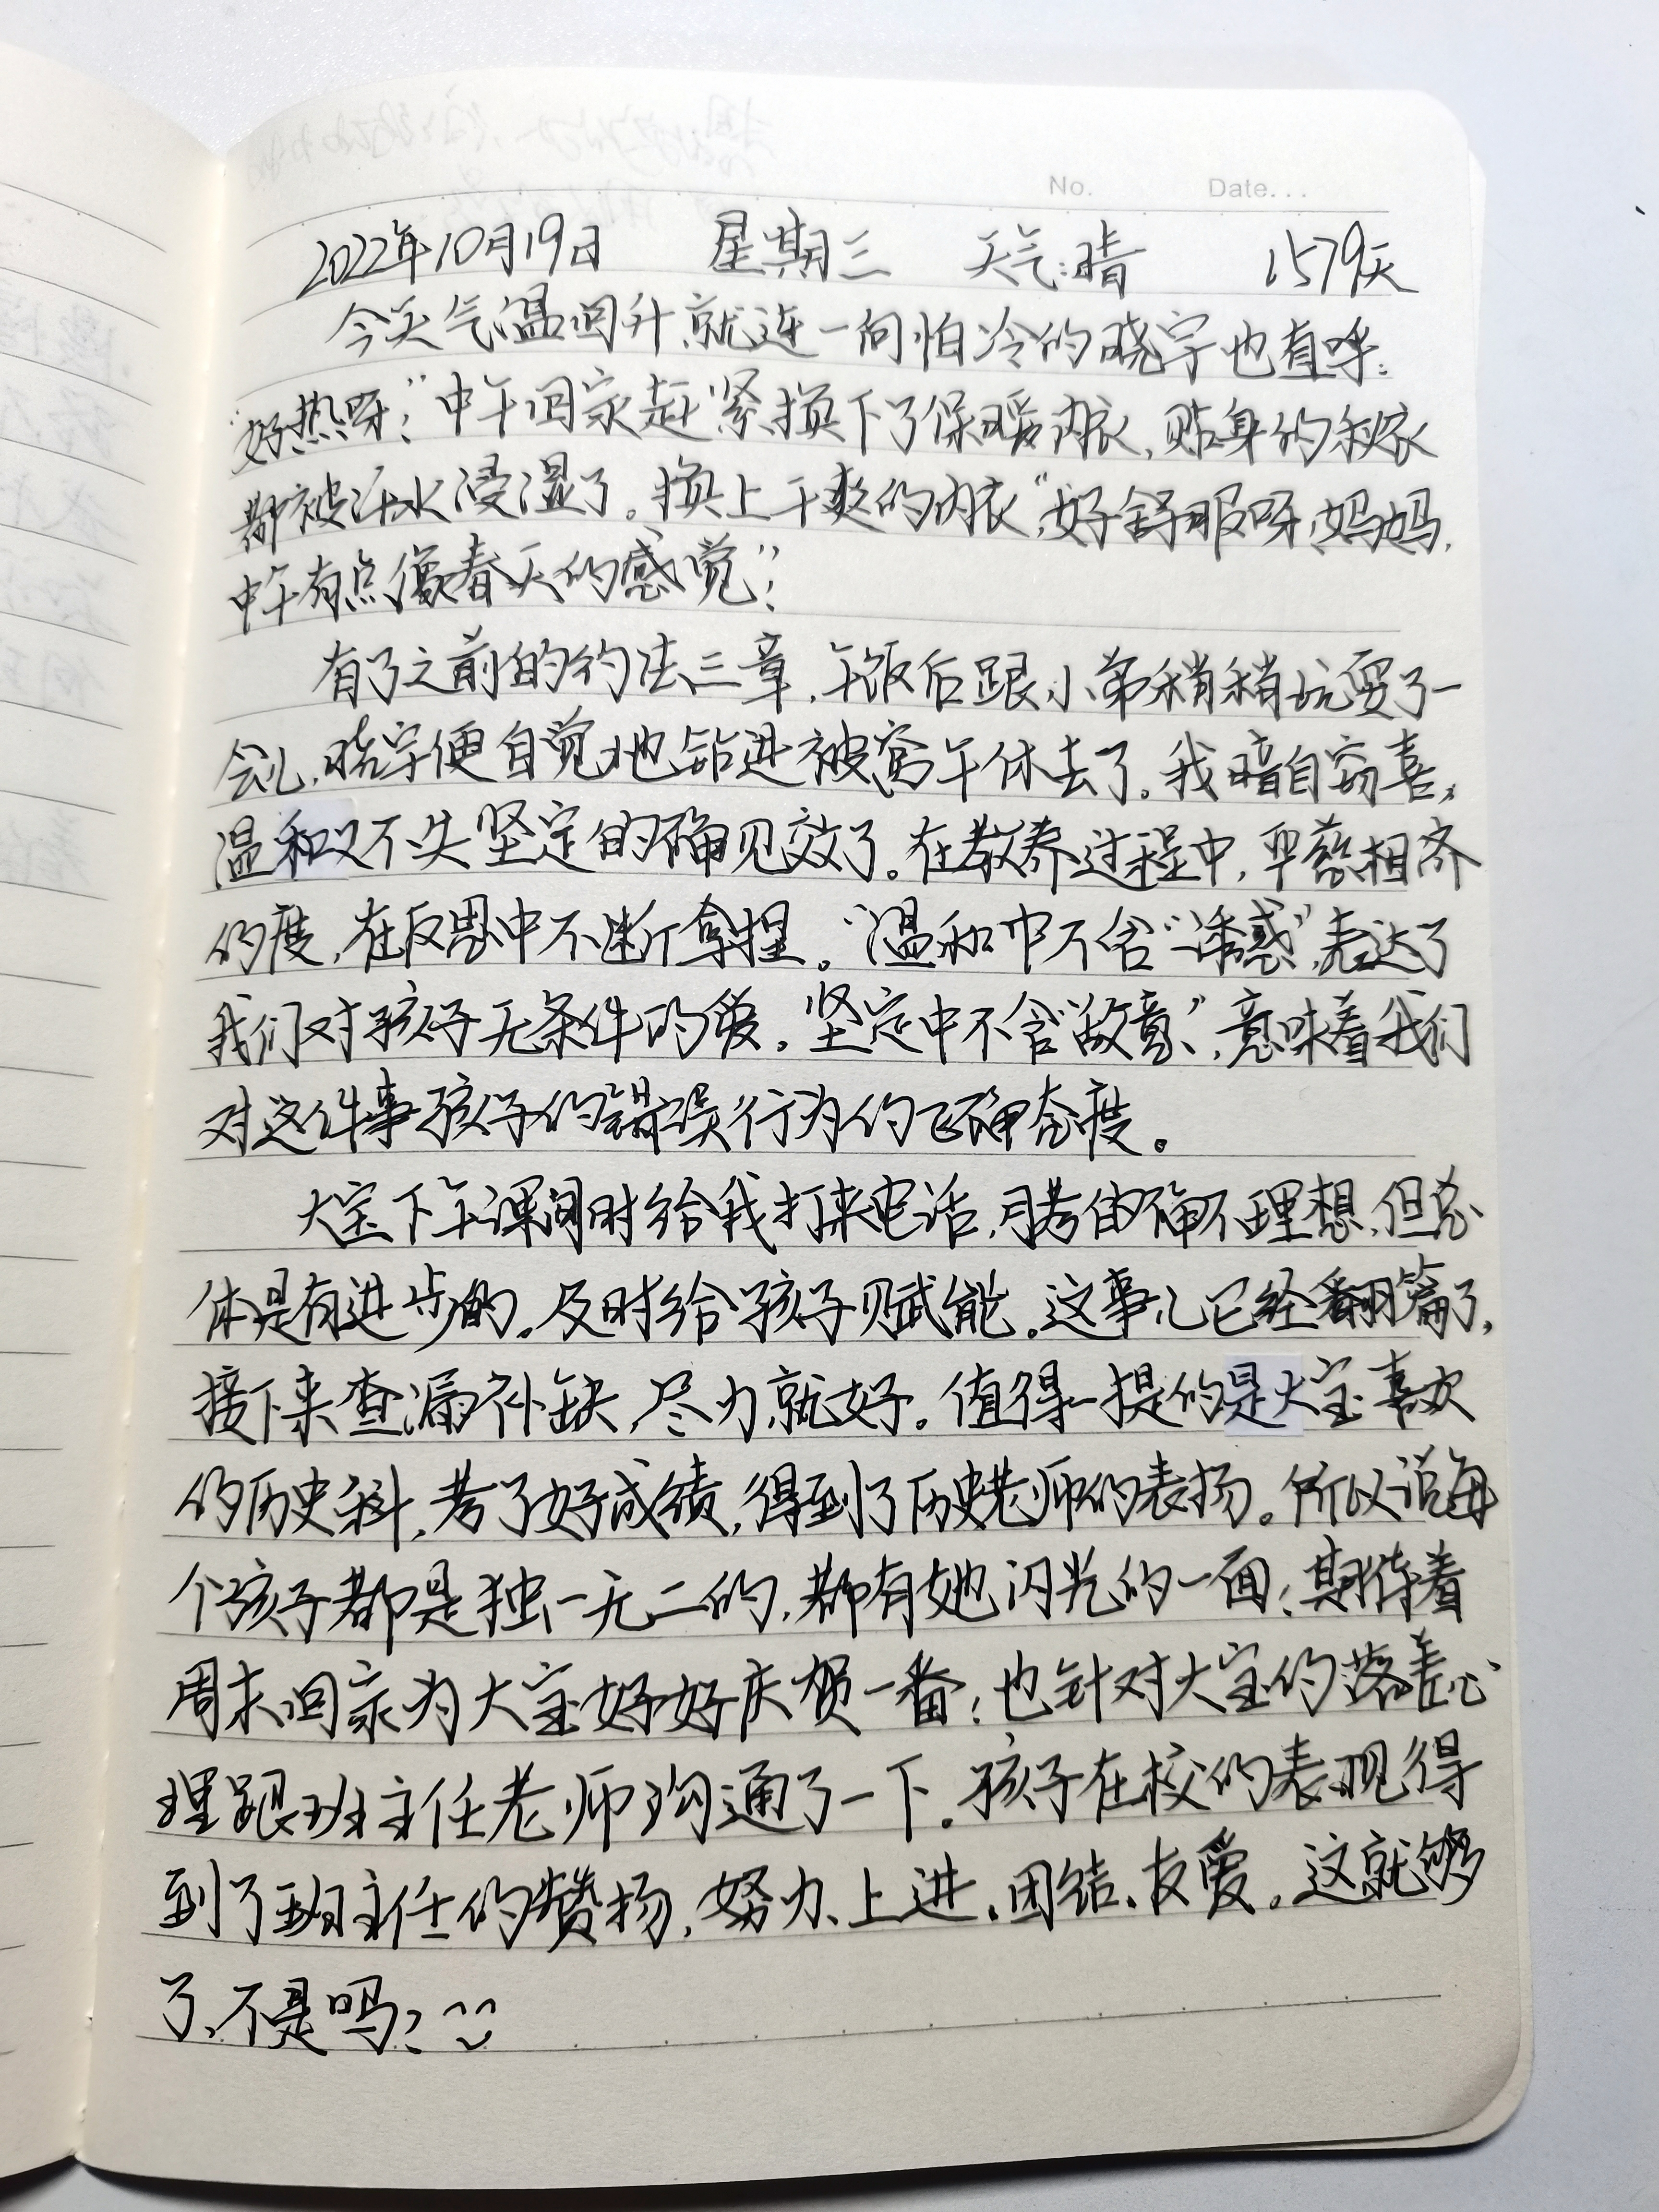 No. Date...
2022年10月19日 星期三 天气:晴 1579天
今天气温回升,就连一向怕冷的晓宇也直呼:
"好热呀!"中午回家赶紧换下了保暖内衣,贴身的秋衣
都被汗水浸湿了。换上干爽的内衣"好舒服呀,妈妈,
中午有点像春天的感觉"!
有了之前的约法三章,午饭后跟小弟稍稍玩耍了一
会儿,晓宇便自觉地钻进被窝午休去了。我暗自窃喜,
温和又不失坚定的确见效了。在教养过程中,平慈相济
的度,在反思中不断拿捏。"温和中不含"诱惑",表达了
我们对孩子无条件的爱。坚定中不含"敌意",意味着我们
对这件事孩子的错误行为的正确态度。
大宝下午课间时给我打来电话,月考的确不理想,但总
体是有进步的。及时给孩子赋能。这事儿已经翻篇了,
接下来查漏补缺,尽力就好。值得一提的是大宝喜欢
的历史科,考了好成绩,得到了历史老师的表扬。所以说每
个孩子都是独一无二的,都有她闪光的一面;期待着
周末回家为大宝好好庆贺一番;也针对大宝的落差心
理跟班主任老师沟通了一下。孩子在校的表现得
到了班主任的赞扬,努力、上进、团结、友爱。这就够
了,不是吗?